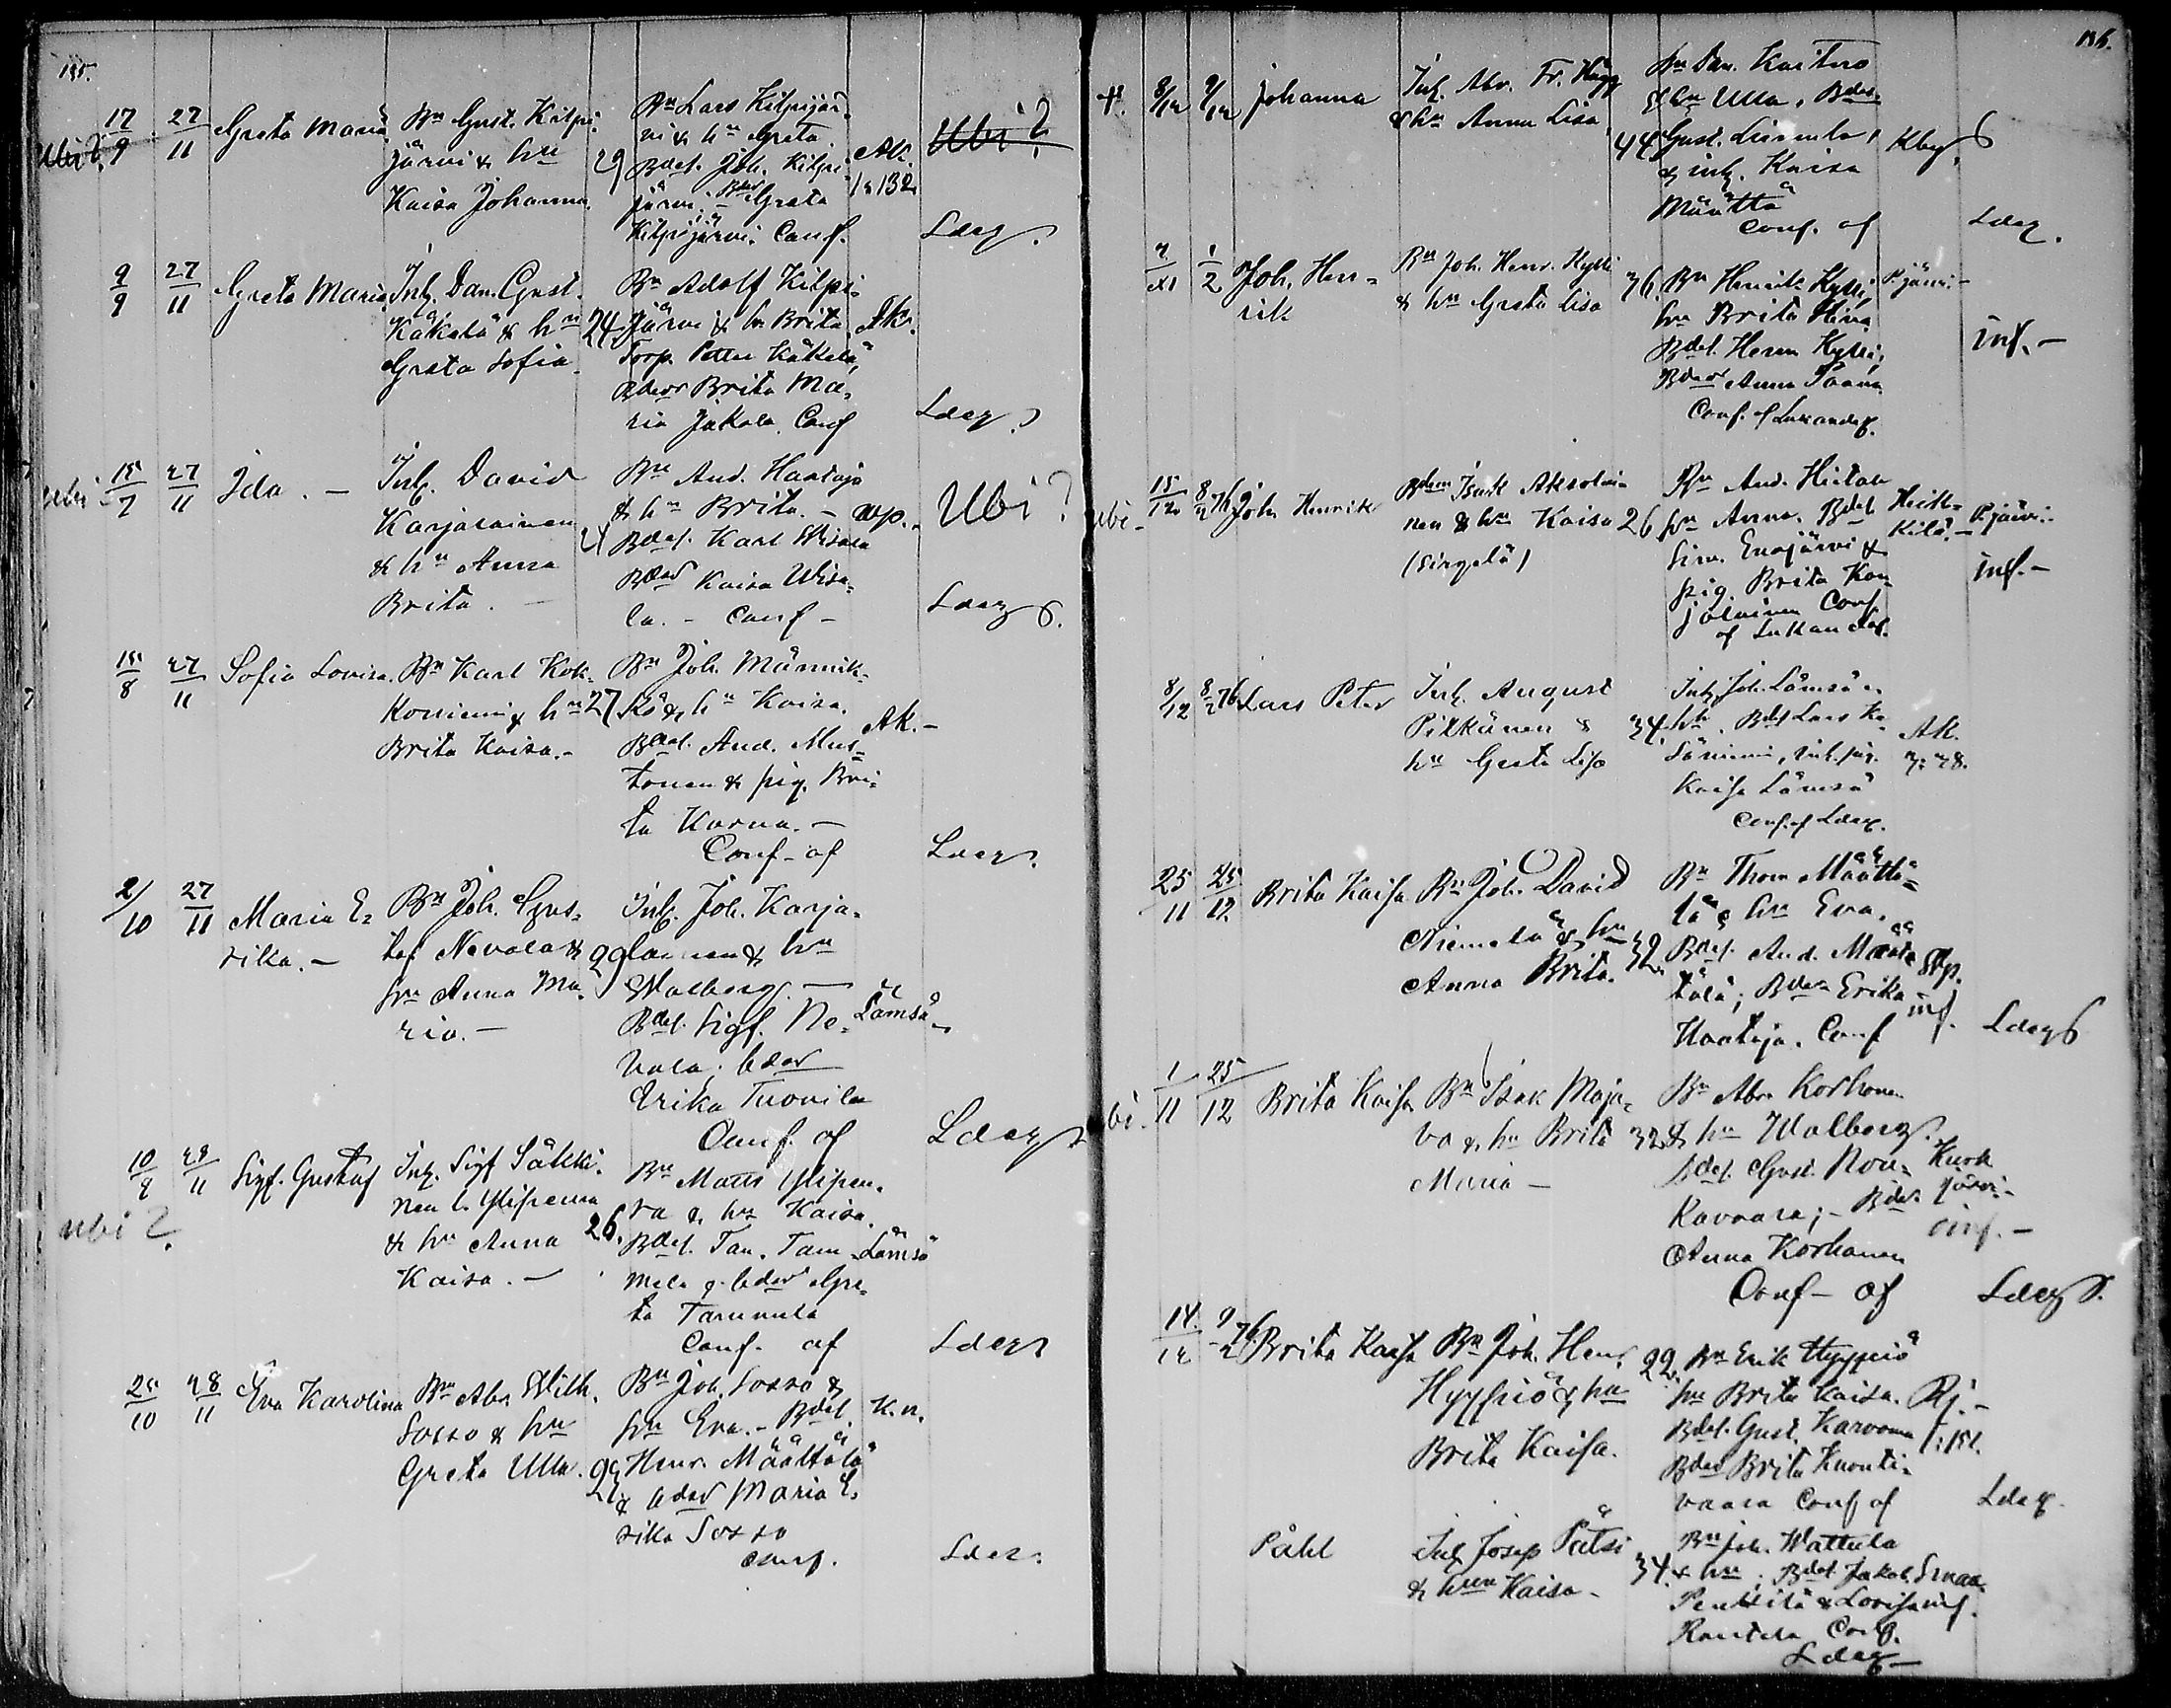 185.
Ubi?
17/9 27/11 Greta Maria. Bn Gust. Kilpi-
järvi & hu
Kaisa Johanna.
29
Bn Lars Kilpijär-
vi & hu Greta
Bdes. Joh. Kilpi-
järvi. Bder Greta
Kilpijärvi. Conf.
Ak.
1:132.
Ubi?
Ldeq.
9/9 27/11 Greta Maria Inh. Dan. Gust.
Käkelä & hu
Greta Sofia.
24.
Bn Adolf Kilpi-
järvi & hu Brita
Torp. Petter Käkelä,
Bder Brita Ma-
ria Jakola. Conf
Ak.
Ldeq.
ubi 15/7 27/11 Ida. - Inh. David
Karjalainen
& hu Anna
Brita. -
Bn And. Haataja
& hu Brita. -
Bdes. Karl Wisala
Bder Kaisa Wisa-
la. - Conf -
Ubi?
Ldeq
15/8 27/11 Sofia Lovisa. Bn Karl Kok-
koniemi & hu
Brita Kaisa. -
27
Bn Joh. Männik-
kö & hu Kaisa.
Bdes. And. Mus-
tonen & pig. Bri-
ta Karna. -
Conf. af
Ak. -
Ldeq.
2/10 27/11 Maria E-
rika. -
Bn Joh. Gus-
taf Nevala &
hu Anna Ma-
ria. -
29
Inh. Joh. Karja-
lainen & hu
Walborg. -
Bdes. Sigf. Ne-
vala; bder
Erika Tuovila
Conf. af
Lämsä
Ldeq
ubi?
10/9 28/11 Sigf. Gustaf Inh. Sigf Säkki-
nen l. Ylipenna
& hu Anna
Kaisa. -
26.
Bn Matts Ylipen-
na & hu Kaisa.
Bdes. Tan. Tam-
mela & bder Gre-
ta Tammela
Conf. af
Lämsä
Ldeq
25/10 28/11 Eva Karolina Bn Abr. Wilh.
Sosso & hu
Greta Ulla.
29
Bn Joh. Sosso &
hu Eva. - Bdes.
Henr. Määttälä
& bder Maria E-
rika Sosso
Conf.
K. n.
Ldeq.
186.
8/12 9/12 Johanna Inh. Abr. Fr. Hägg
& hu Anna Lisa
44
Bn Dan. Kaitero
& hu Ulla. Bdes.
Gust. Liimula,
& inh. Kaisa
Määttä
Conf. af
Kby.
Ldeq.
1/2 Joh. Hen-
rik
Bn Joh. Henr. Kylli
& hu Greta Lisa
36.
Bn Henrik Kylli,
hu Brita Stina
Bdes. Herm Kylli,
Bder Anna Paana
Conf. af Lukander.
P.järvi -
inf. -
ubi -
15/12 8/2 76 Joh. Henrik Bdem Isak Aksolai-
nen & hu Kaisa
(Sirpelä)
26
Bn And. Hietala
hu Anna. Bdes
Sim. Enojärvi &
pig. Brita Kar-
jalainen Conf.
af Lukander.
Heik-
kilä. -
P.järvi. -
inf. -
8/12 8/2 76 Lars Peter Inh. August
Pikkänen &
hu Greta Lisa
34.
Inh. Joh. Lämsä
hu. Bdes Lars
Kaisa Lämsä
Conf. af Ldeq.
Ak.
7:78.
25/11 25/12 Brita Kaisa Bn Joh. David
Niemelä & hu
Anna Brita.
32.
Bn Thom. Määttä-
lä & hu Eva.
Bdes. And. Määt-
tälä; Bder Erika
Haataja. Conf
inf.
Ldeq
1/11 25/12 Brita Kaisa Bn Isak Maja-
va & hu Brita
Maria -
32
Bn Abr. Korhonen
& hu Walborg.
Bdes. Gust. Non-
kavaara; - Bder
Anna Korhonen
Conf - af
Kurk
järvi -
inf. -
Ldeq
14/12 9/2 76. Brita Kaisa Bn Joh. Henr.
Hyyppiö & hu
Brita Kaisa.
22.
Bn Erik Hyyppiö
hu Brita Kaisa.
Bdes. Gust. Karvonen
Bder Brita Kuonti-
vaara Conf af
Rj. -
1:151.
Ldeq.
Påhl Inh Josep Pätsi
& hun Kaisa -
34.
Bn Joh. Wattula
& hu; Bdes. Jakob
Penttilä & Lovisa
Rantala Conf.
Ldeq -
inf.